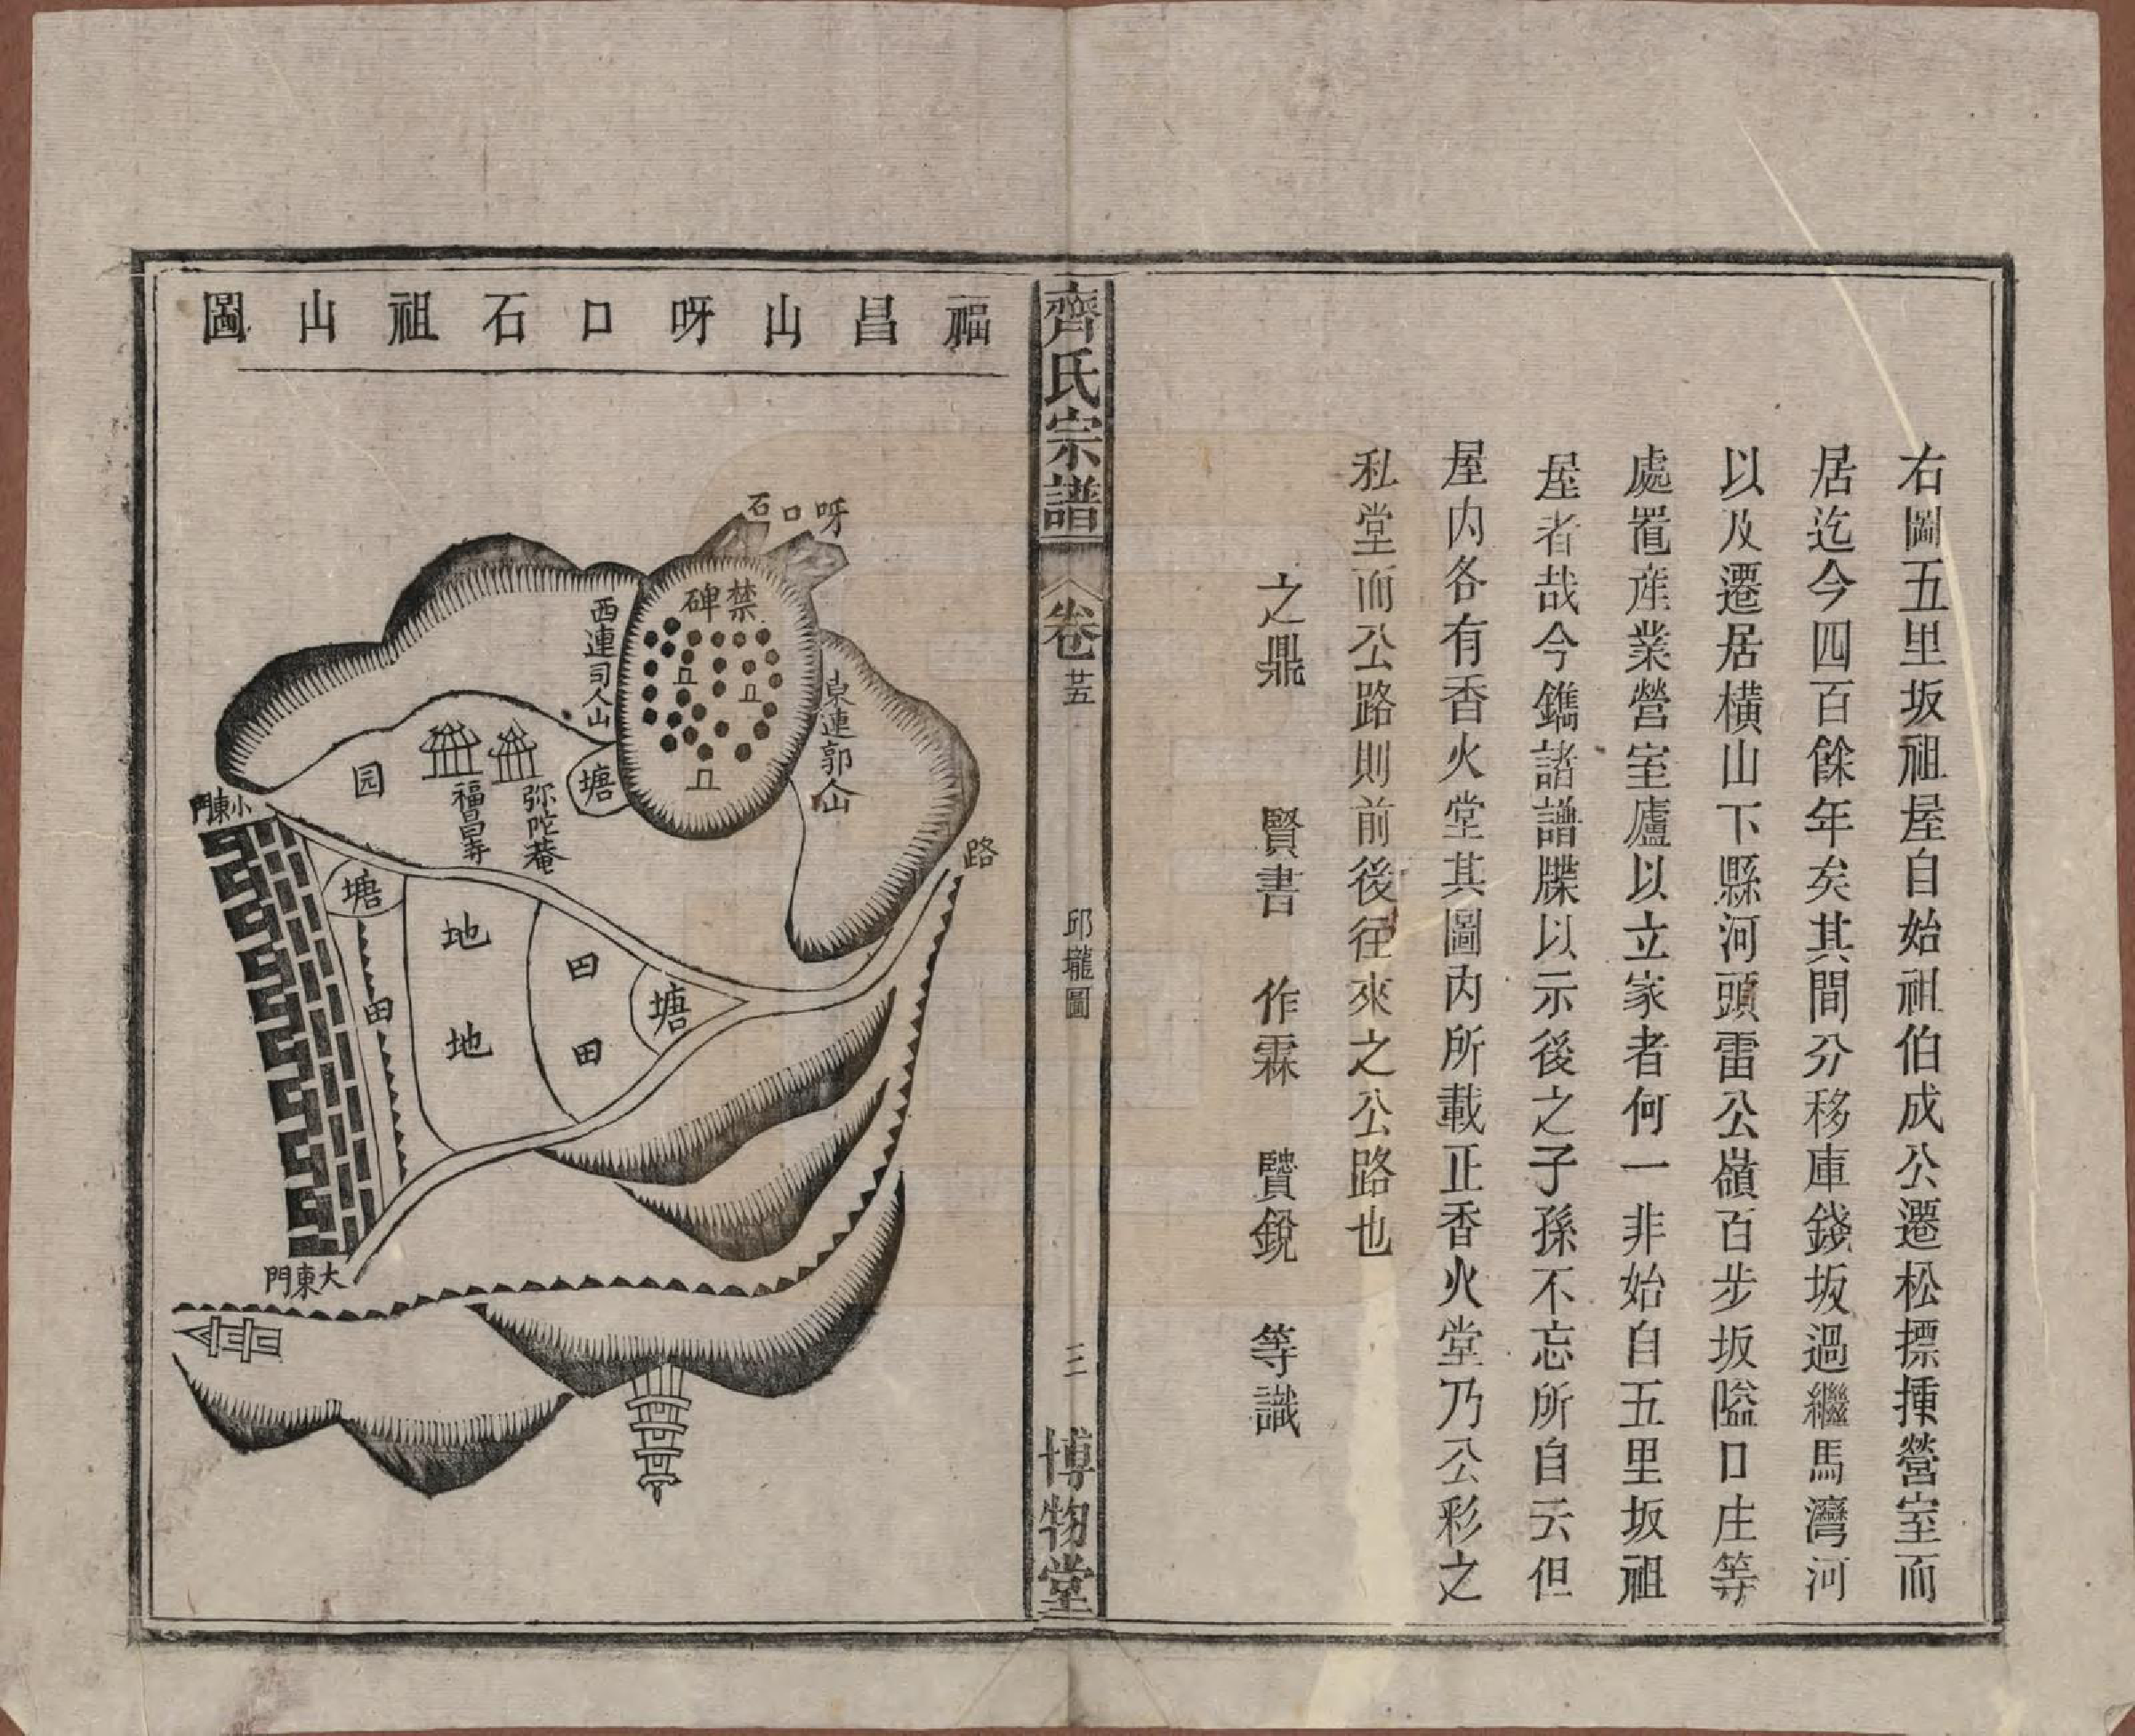 右圖五里坂祖屋自始祖伯成公遷松摽揰營室而
居迄今四百餘年矣其間分移庫錢坂過繼馬灣河
以及遷居橫山下縣河頭雷公嶺百步坂隘口庄等
處置産業營室廬以立家者何一非始自五里坂祖
屋者哉今鐫諸譜牒以示後之子孫不忘所自云但
屋内各有香火堂其圖内所載正香火堂乃公彩之
私堂而公路則前後往來之公路也
之鼎 賢書 作霖 贒銳 等識
齊氏宗譜
卷廿五
邱壠圖
三
博物堂
福昌山呀口石祖山圖
呀口石
禁碑
西連司人山
東連郭人山
塘
弥陀菴
福昌寺
园
小東門
路
塘
地
地
田
田
塘
田
大東門